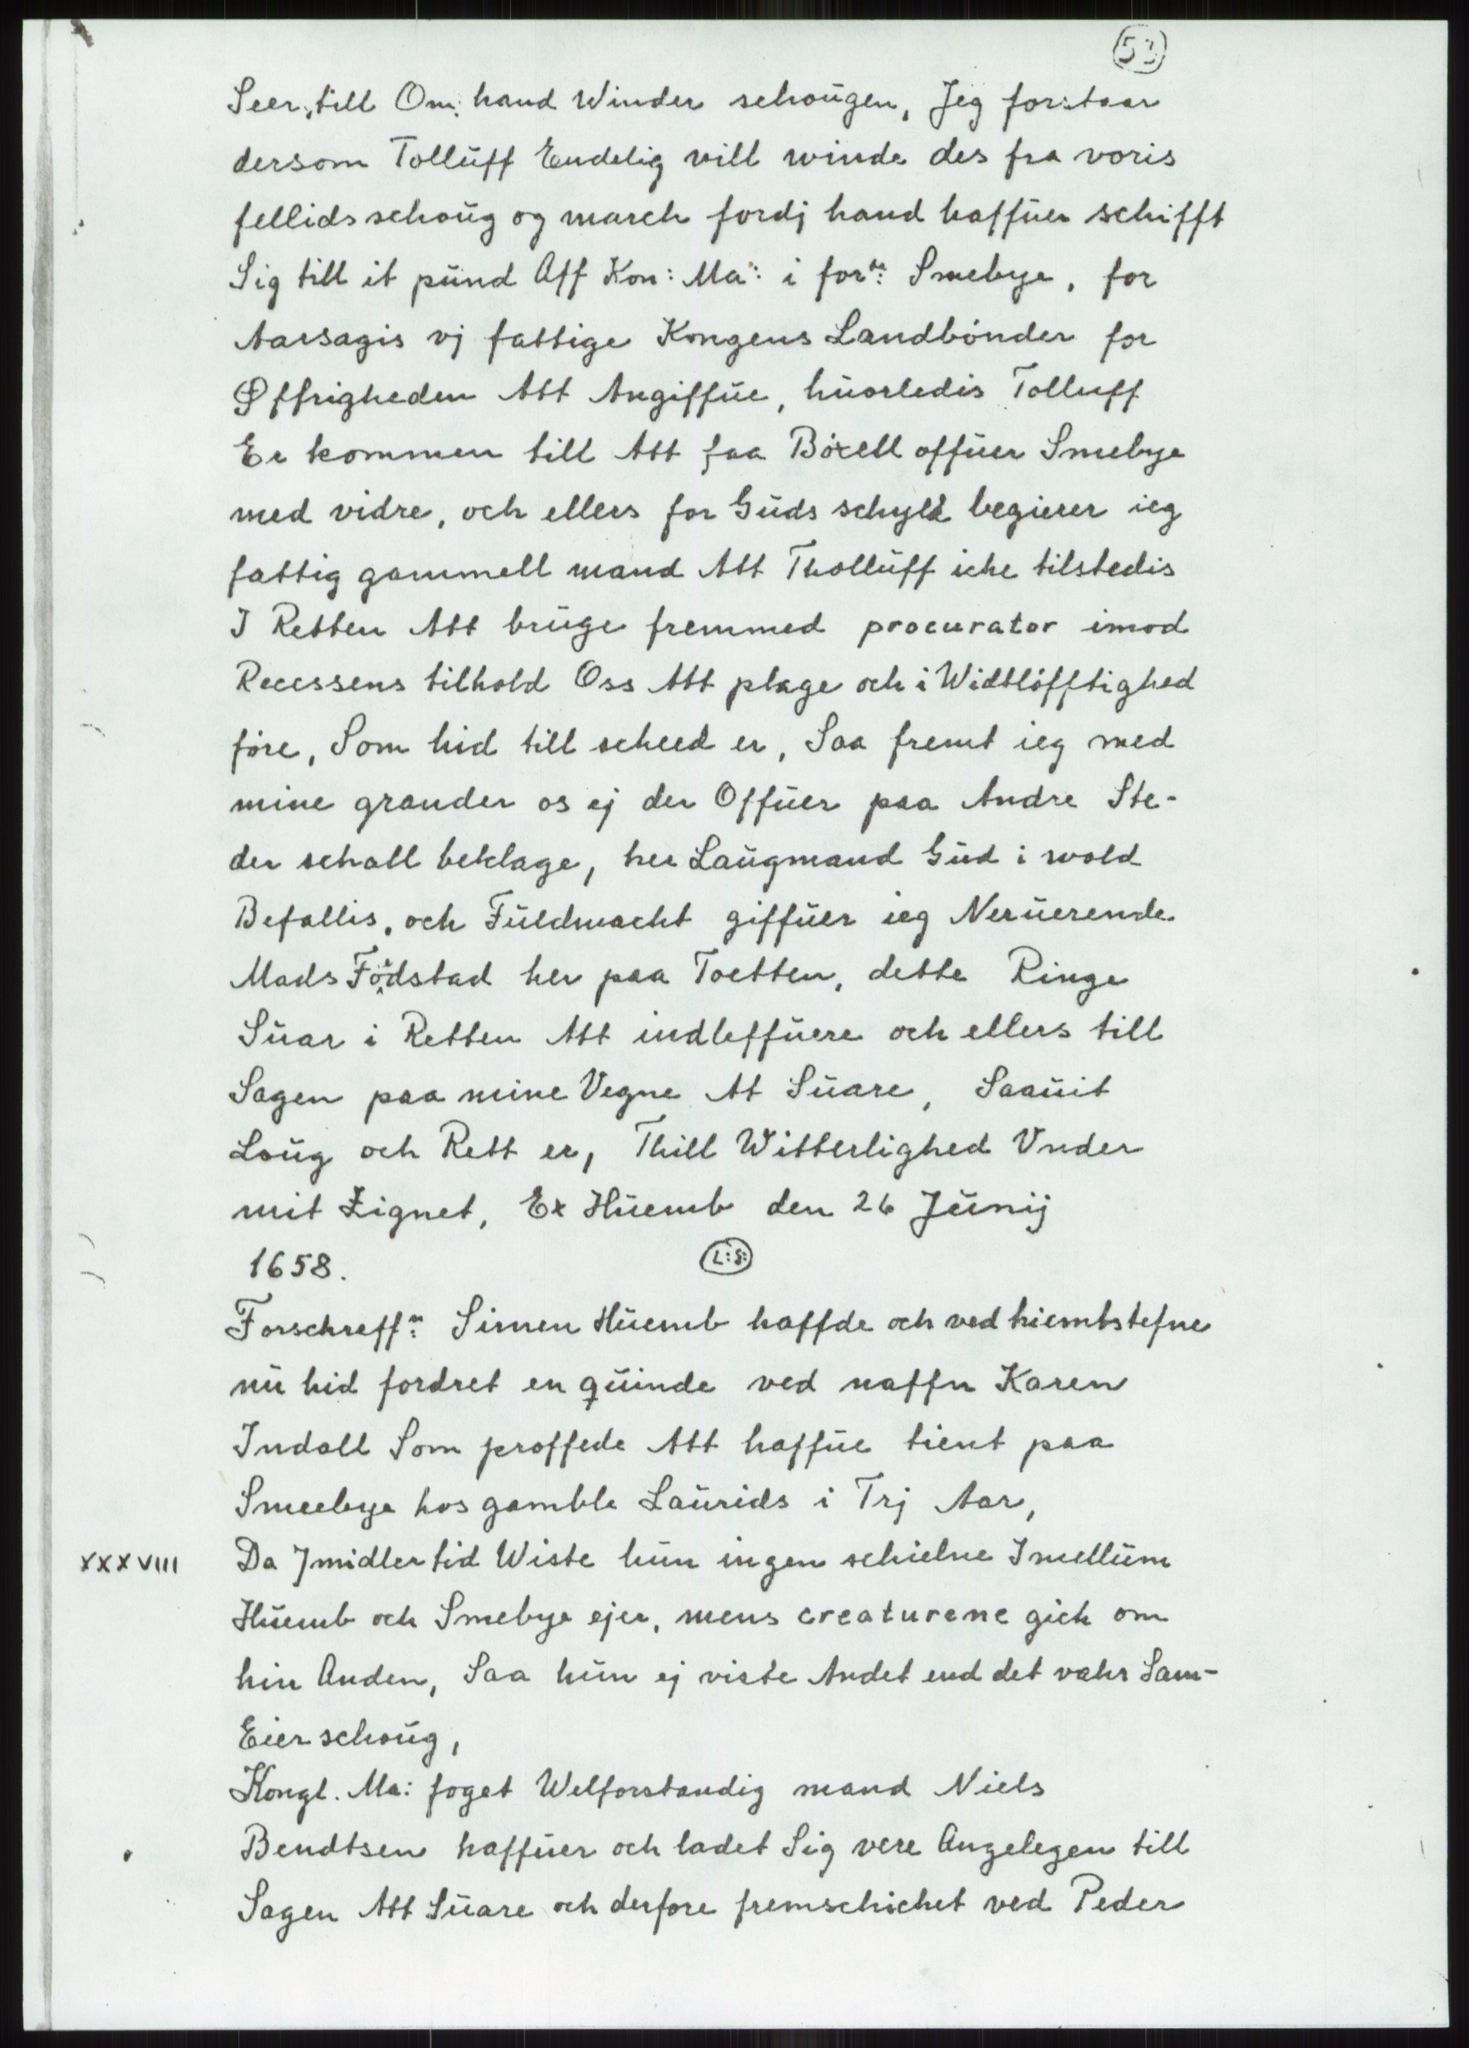 53
Seer, till Om hand Winder schoügen, Jeg forstaar
dersom Tollüff Endelig vill winde des fra voris
fellids schoüg og march fordj hand haffüer schifft
Sig till it pünd Aff Kon: Ma: i forⁿ: Smebye, for
Aarsagis vj fattige Kongens Landbönder for
Øffrigheden Att Angiffüe, hüorledis Tolluff
Er kommen till Att faa Böxell offüer Smebye
med vidre, och ellers for Güds schyld begierer ieg
fattig gammell mand Att Thollüff iche tilstedis
I Retten Att brüge fremmed procurator imod
Recessens tilhold Oss Att plage och i Widtlöfftighed
före, Som hid till scheed er, Saa fremt ieg med
mine grander os ej der Offüer paa Andre Ste-
der schall beklage, her Laügmand Gud i wold
Befallis, och Füldmacht giffüer ieg Nerüerende
Mads Födstad her paa Toetten, dette Ringe
Süar i Retten Att indleffüere och ellers till
Sagen paa mine Vegne At Süare, Saaüit
Loüg och Rett er, Thill Witterlighed Vnder
mit Zignet, Ex Hüemb den 26 Jünij
1658. L:S:
Forschreffⁿ: Simen Hüemb haffde och ved hiembstefne
nü hid fordret en qüinde ved naffn Karen
Indall Som proffede Att haffüe tient paa
Smeebye hos gamble Laürids i Trj Aar,
XXXVIII Da Jmidlertid Wiste hün ingen schielne Imellüm
Hüemb och Smebye ejer, mens creaturene gick om
hin Anden, Saa hün ej viste Andet end det vahr Sam-
Eier schoüg,
Kongl. Ma: foget Welforstandig mand Niels
Bendtsen haffüer och ladet Sig vere Angelegen till
Sagen Att Süare och derfore fremschichet ved Peder